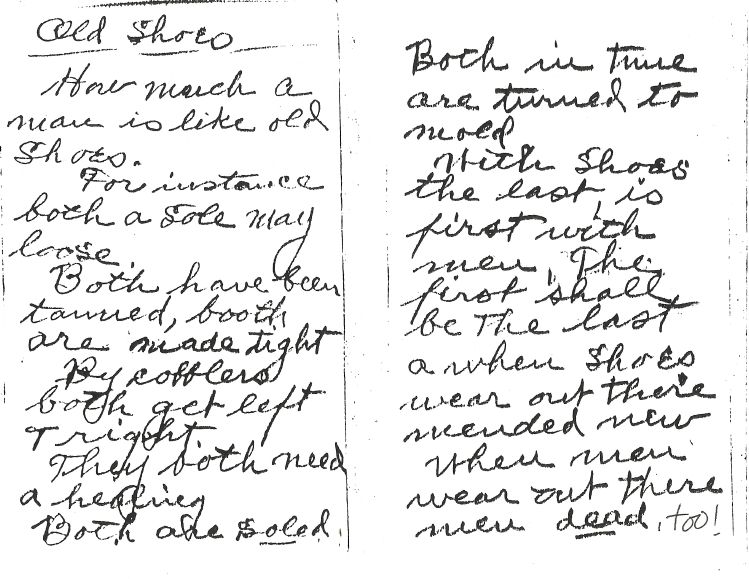 Old Shoes
How much a
man is like old
Shoes.
For instance
both a Sole may
loose.
Both have been
tanned, booth
are made tight
By cobblers
both get left
+ right
They both need
a healing
Both are Soled.
Both in time
are turned to
mold
With Shoes
the last, is
first with
men, The
first shall
be The last
a when Shoes
wear out there
mended new
When men
wear out there
men dead, too!